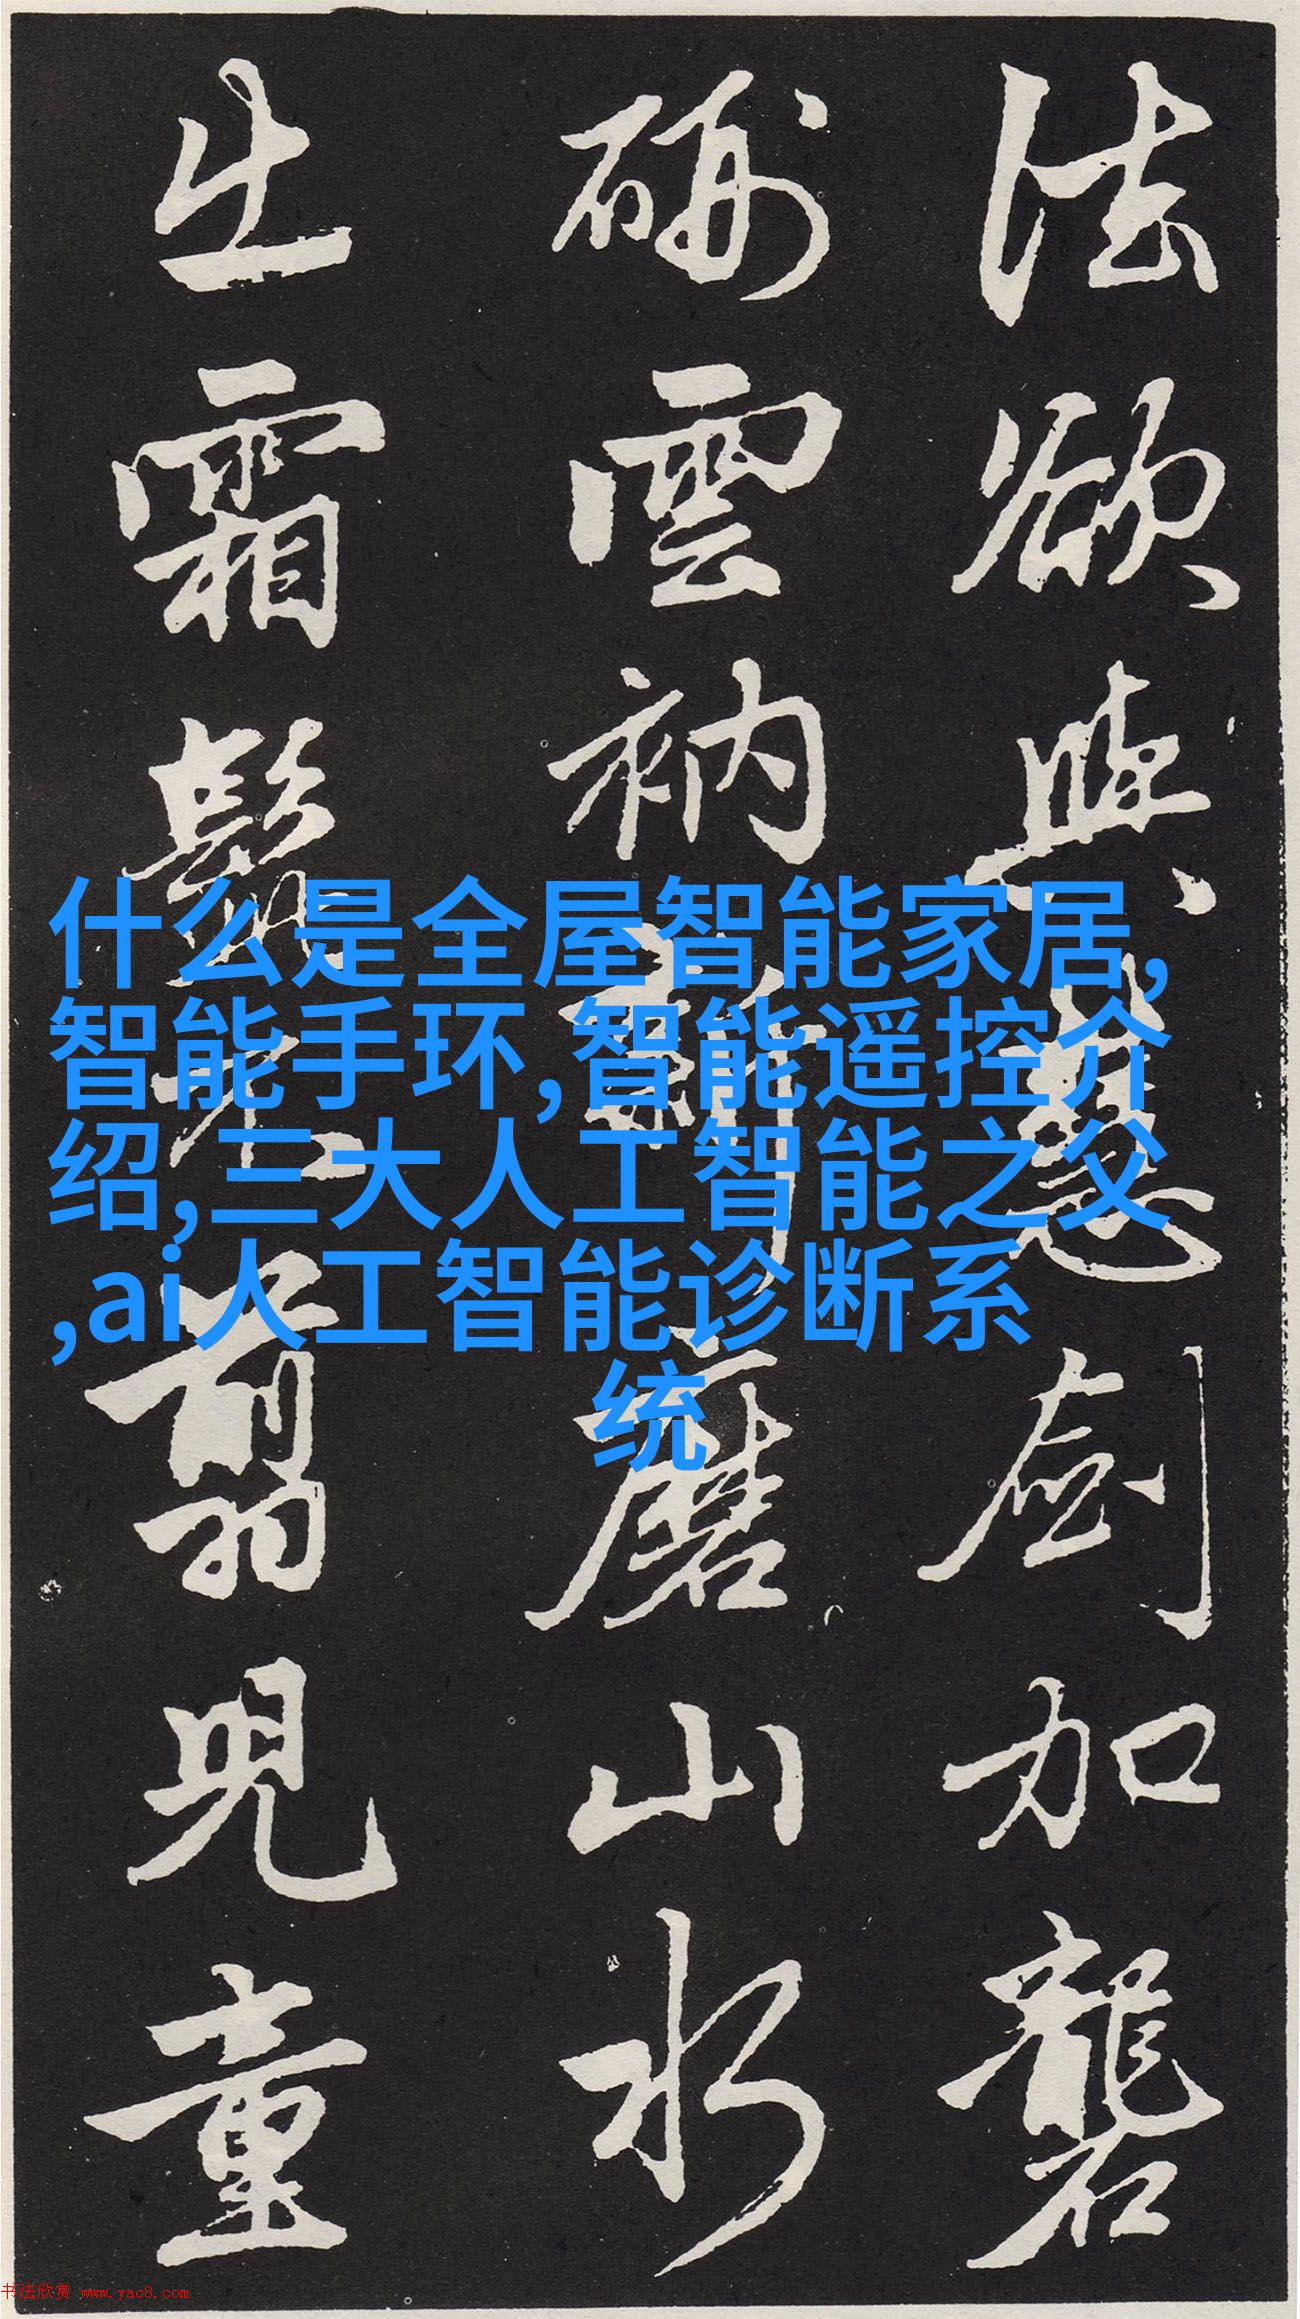 法欲與慧劍加礱
硎雲衲新磨山水
出霜髭不翦兒童
什么是全屋智能家居,
智能手环,智能遥控介
绍,三大人工智能之父
,ai人工智能诊断系
统
书法欣赏 www.yac8.com